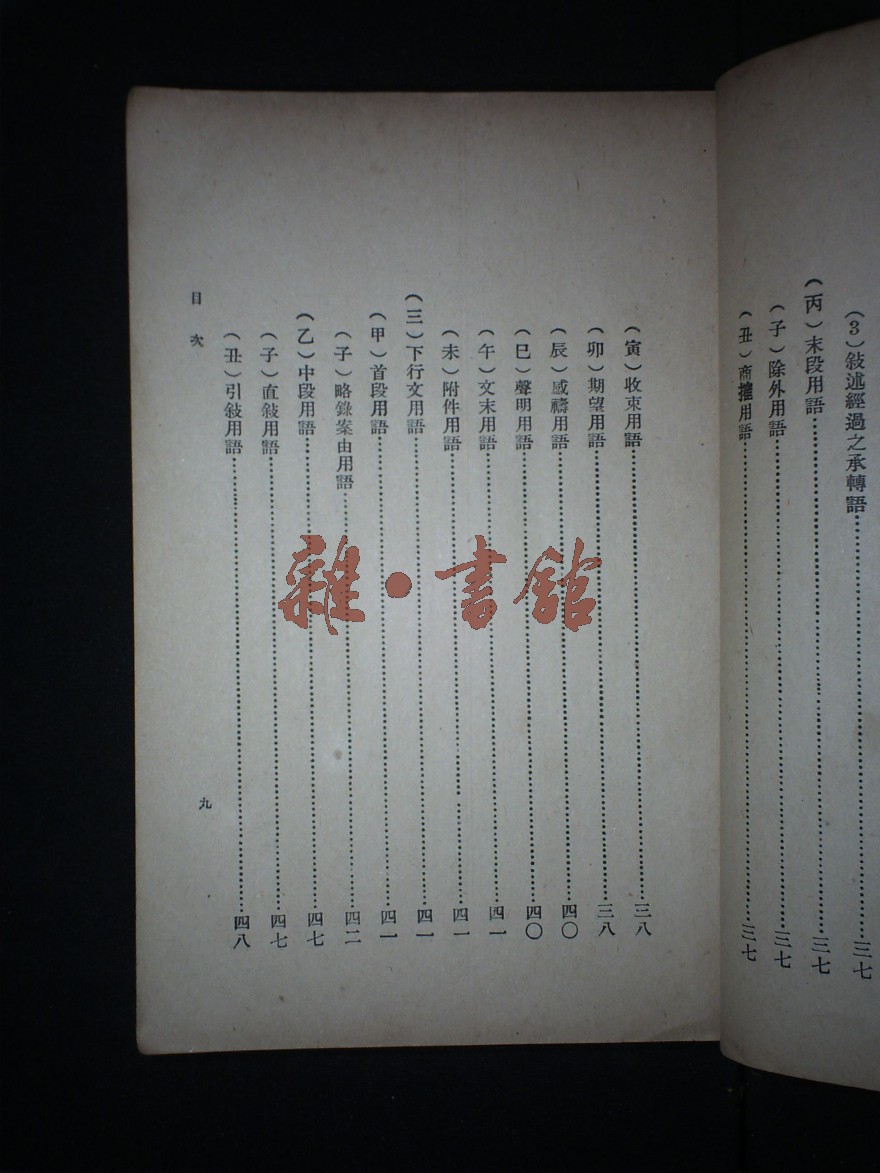 （3）敍述經過之承轉語…………三七
（丙）末段用語…………三七
（子）除外用語…………三七
（丑）商搉用語…………三七
（寅）收束用語…………三八
（卯）期望用語…………三八
（辰）感禱用語…………四〇
（巳）聲明用語…………四〇
（午）文末用語…………四一
（未）附件用語…………四一
（三）下行文用語…………四一
（甲）首段用語…………四一
（子）略錄案由用語…………四二
（乙）中段用語…………四七
（子）直敍用語…………四七
（丑）引敍用語…………四八
目次
九
雜·書館